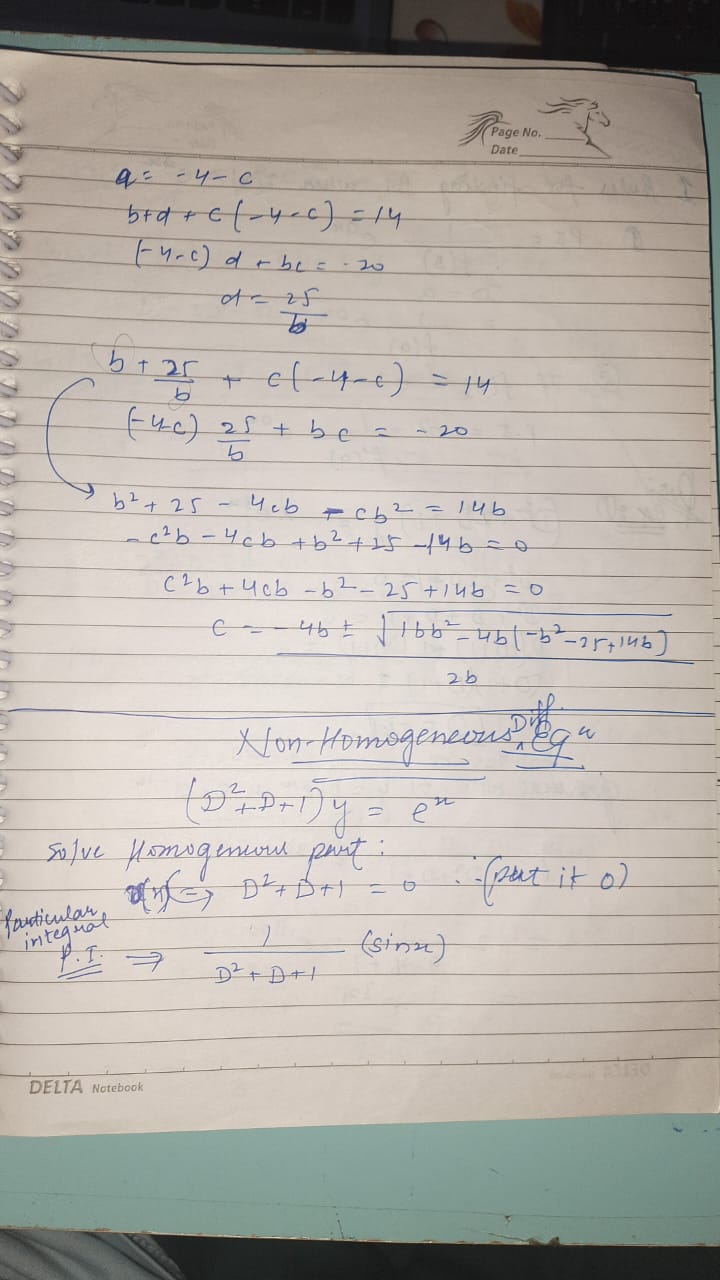 Page No.
Date
a = -4-c
b+d + c(-4-c) = 14
(-4-c) d + bc = -20
d = 25/b
b + 25/b + c(-4-c) = 14
(-4-c) 25/b + bc = -20
b² + 25 - 4cb - cb² = 14b
-c²b - 4cb + b² + 25 - 14b = 0
c²b + 4cb - b² - 25 + 14b = 0
c = -4b ± √16b² - 4b(-b² - 25 + 14b) / 2b
Non-Homogeneous Diff. Eqⁿ
(D² + D + 1)y = eˣ
Solve Homogeneous part:
⇒ D² + D + 1 = 0 (put it 0)
Particular integral
P.I. ⇒ 1/(D² + D + 1) (sinx)
DELTA Notebook